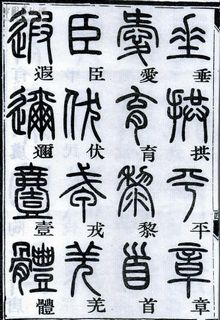 垂拱平章
愛育黎首
臣伏戎羌
遐邇壹體